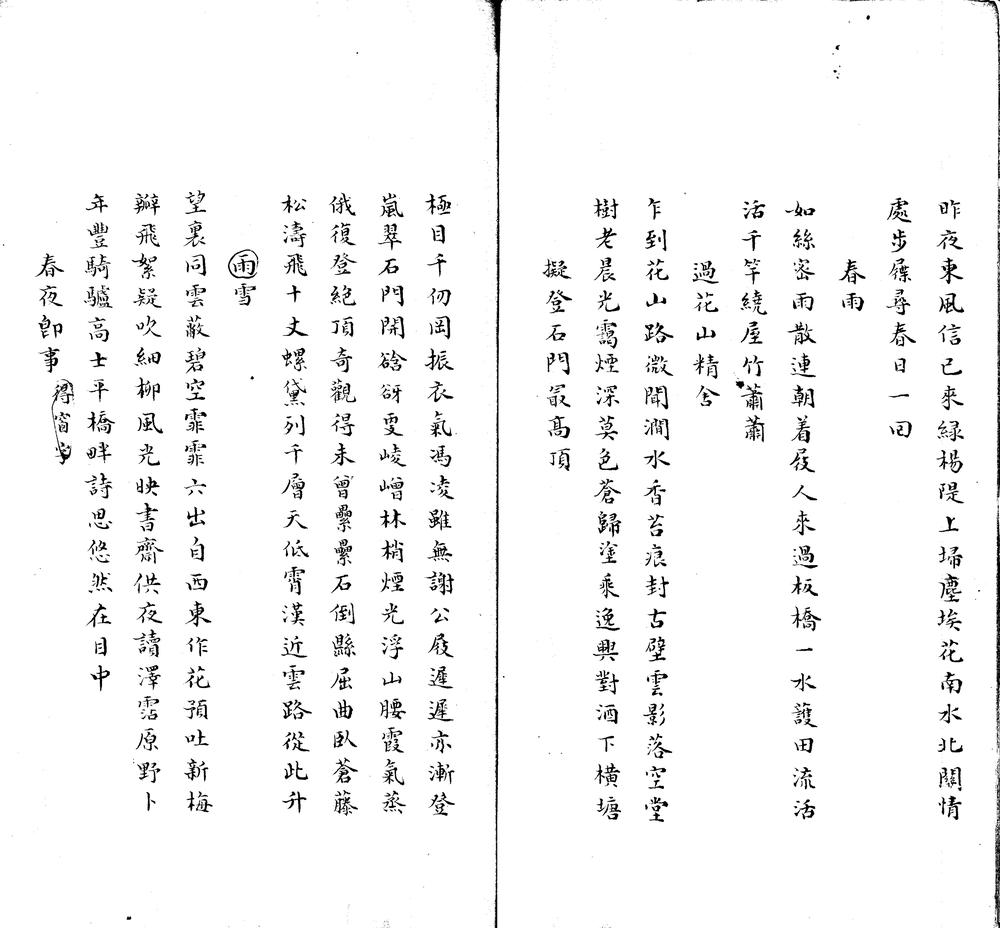 昨夜東風信已來綠楊隄上埽塵埃花南水北關情
處步屧尋春日一回
春雨
如絲密雨散連朝着屐人來過板橋一水護田流活
活千竿繞屋竹蕭蕭
過花山精舍
乍到花山路微聞澗水香苔痕封古壁雲影落空堂
樹老晨光靄煙深莫色蒼歸塗乘逸興對酒下橫塘
擬登石門最高頂
極目千仞岡振衣氣馮凌雖無謝公屐遲遲亦漸登
嵐翠石門開硆谺更崚嶒林梢煙光浮山腰霞氣蒸
俄復登絕頂奇觀得未曾纍纍石倒縣屈曲臥蒼藤
松濤飛十丈螺黛列千層天低霄漢近雲路從此升
雨雪
望裏同雲蔽碧空霏霏六出自西東作花預吐新梅
瓣飛絮疑吹細柳風光映書齋供夜讀澤霑原野卜
年豐騎驢高士平橋畔詩思悠然在目中
春夜卽事 得窗字